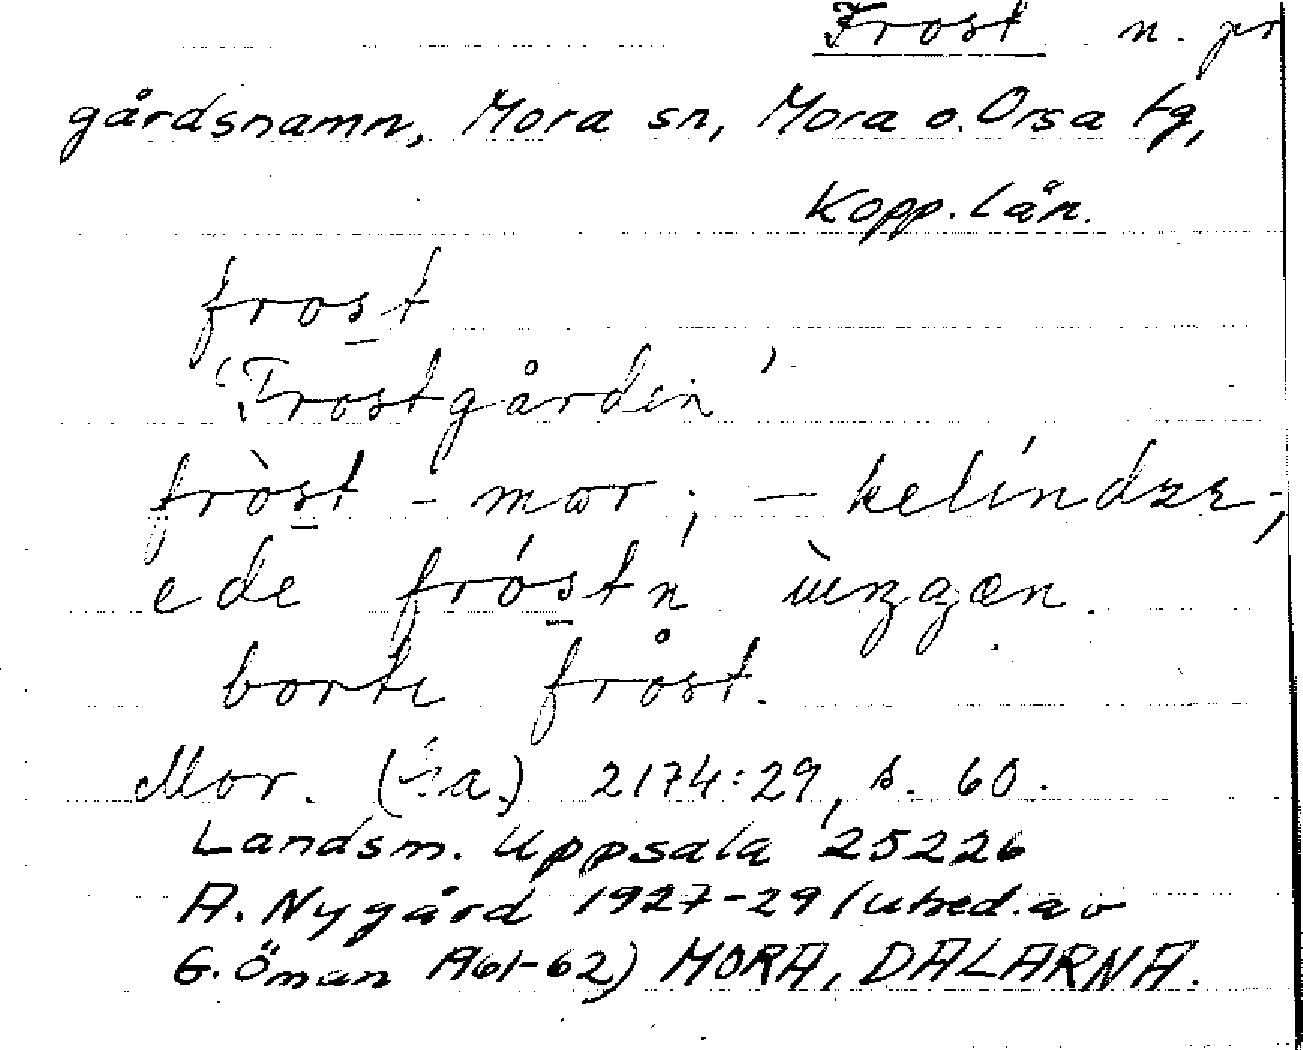 Frost n. pr
gårdsnamn, Mora sn, Mora o. Orsa tg,
Kopp. län.
frost
'Frostgården'
fròst - mor; — kelíndzr;
ede fróstn ùnggæn.
borte fråst.
Mor. 2174:29, s. 60.
Landsm. Uppsala 25226
A. Nygård 1927-29 (utred. av
G. Öman A61-62) MORA, DALARNA.